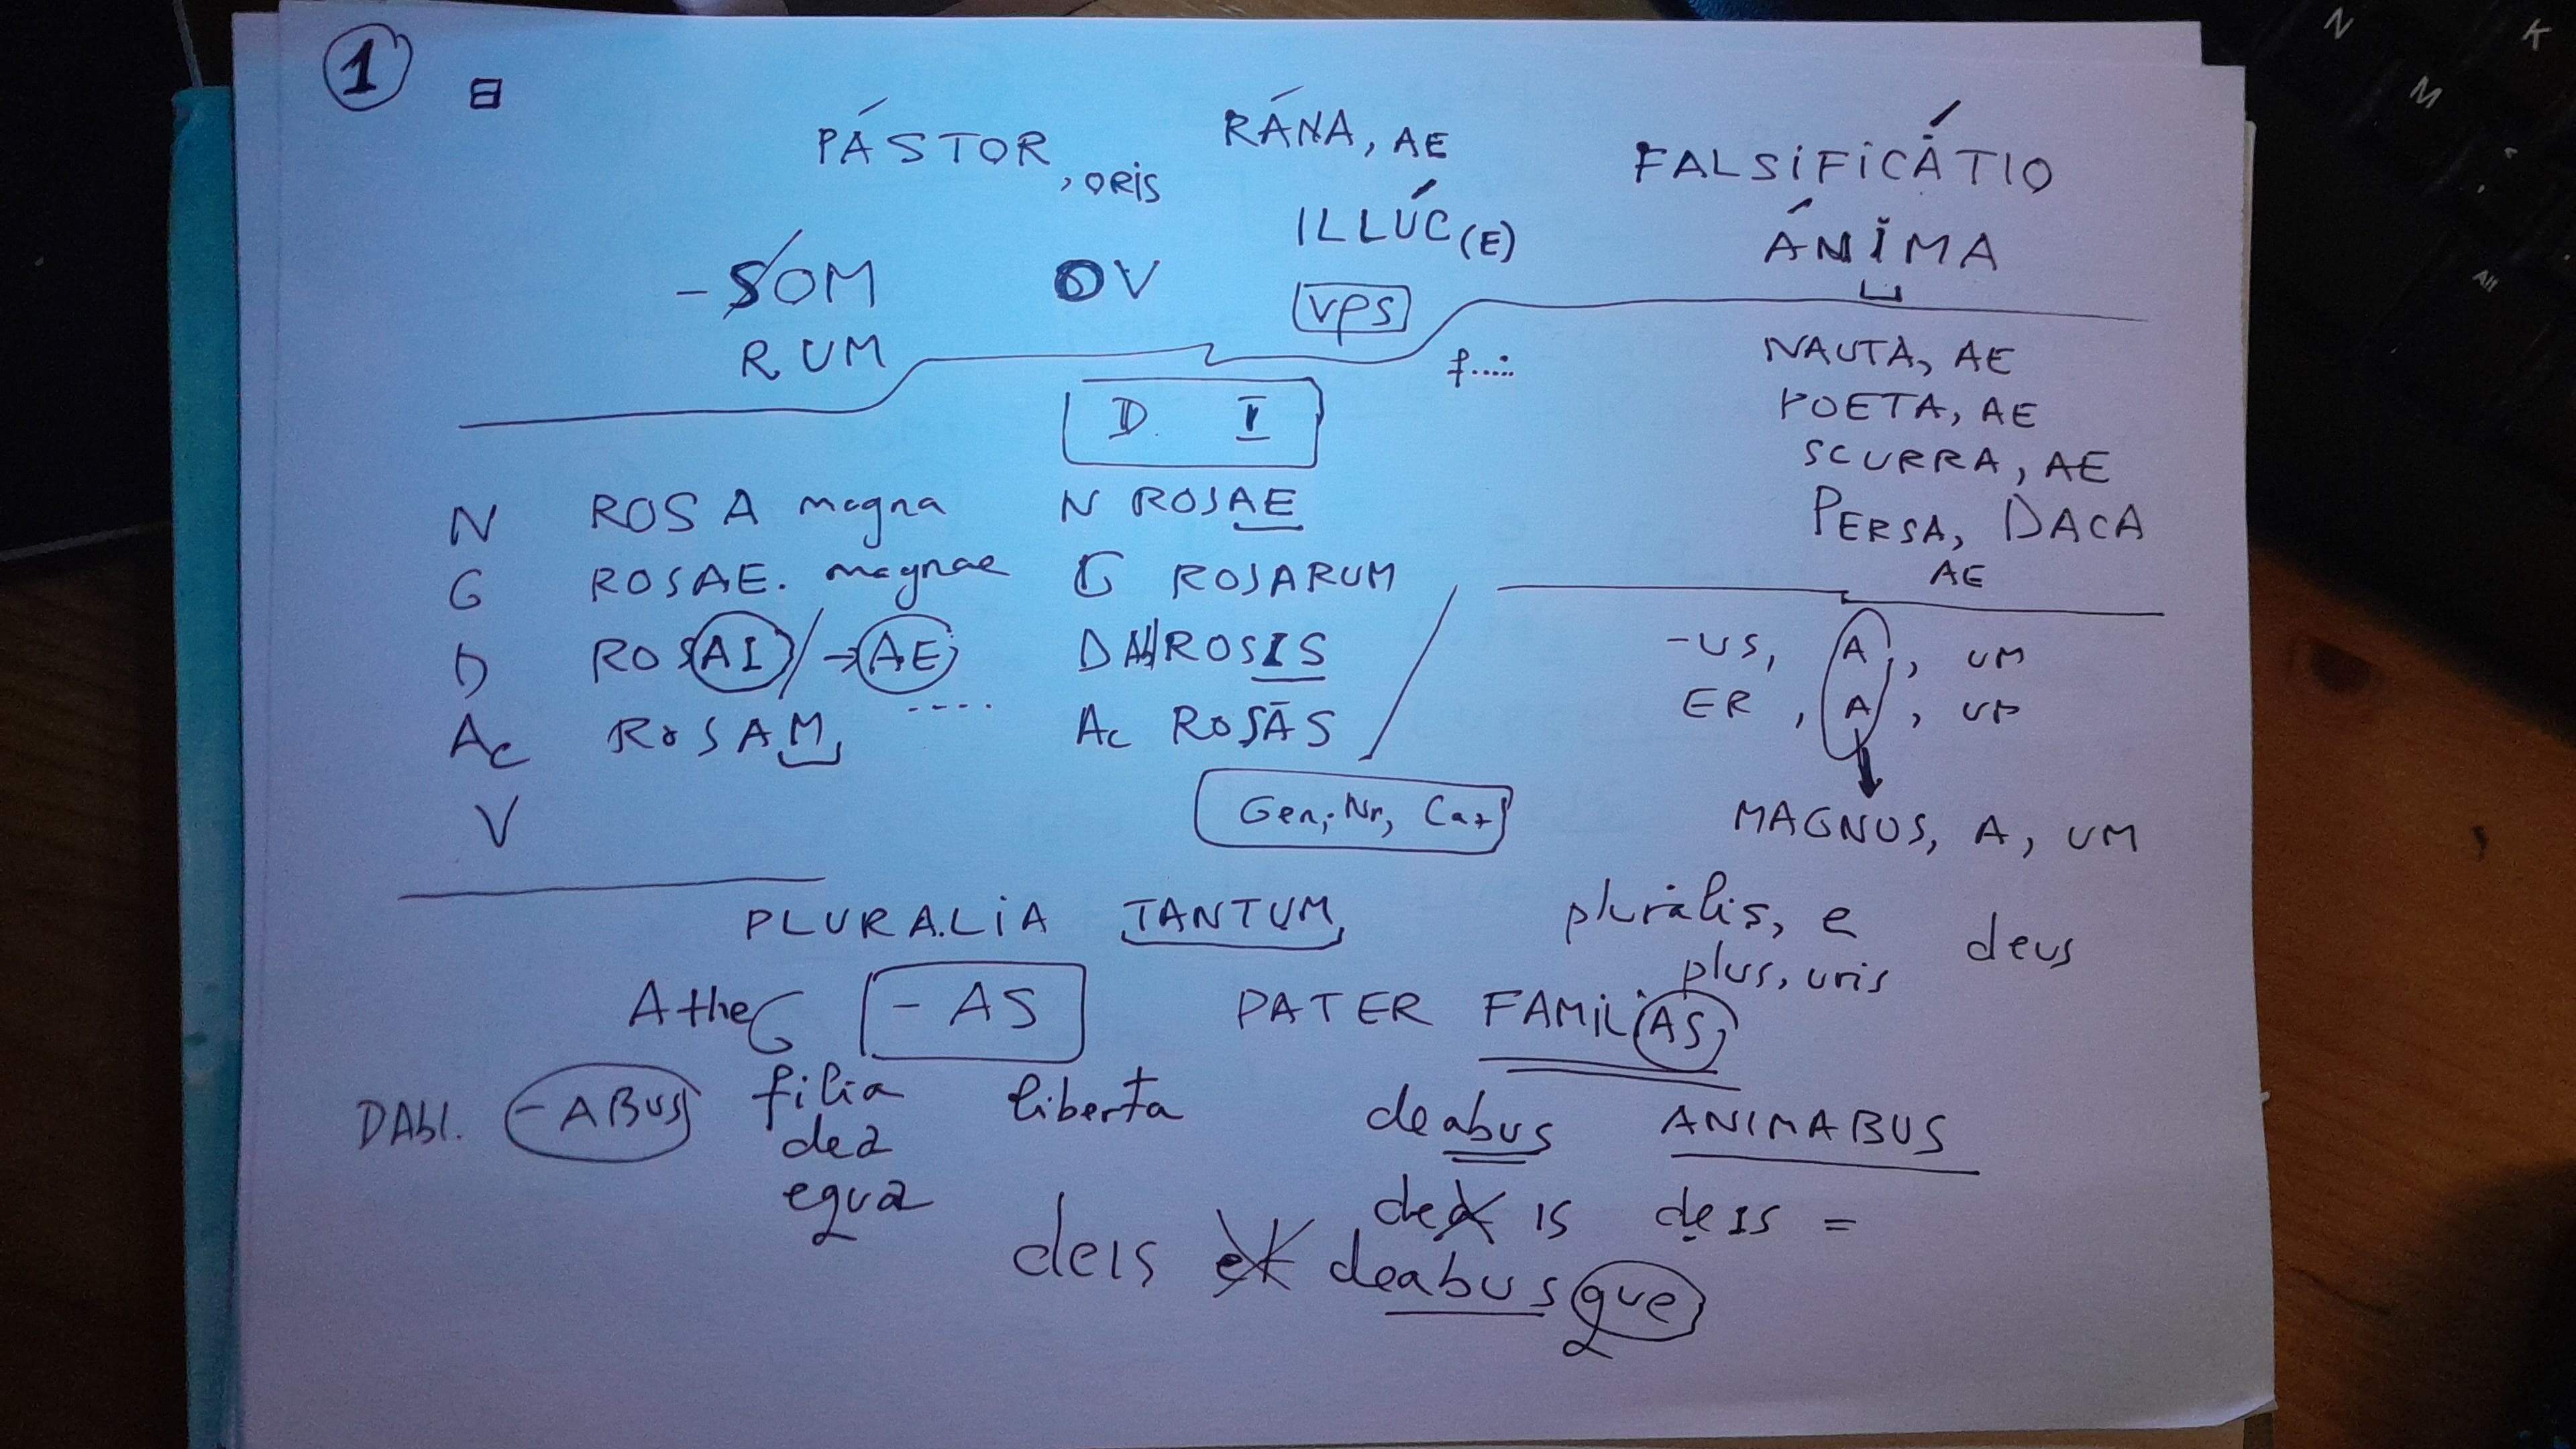 1
PÁSTOR, ORIS RÁNA, AE FALSIFICÁTIO
ILLÚC(E) ÁNĬMA
-SOM OV VPS
RUM f.....
NAUTA, AE
POETA, AE
SCURRA, AE
PERSA, DACA
AE
D. I
N ROSA magna N ROSAE
G ROSAE. magnae G ROSARUM
D ROSAI/→AE D ROSIS
Ac ROSAM .... Ac ROSĀS
V
-US, A, UM
ER, A, UM
Gen, Nr, Caz
MAGNUS, A, UM
PLURALIA TANTUM pluralis, e deus
plus, uris
Athe G -AS PATER FAMILIAS
DAbl. -ABUS filia liberta deabus ANIMABUS
dea
equa dea is deis =
deis et deabusque
N K
M
Alt